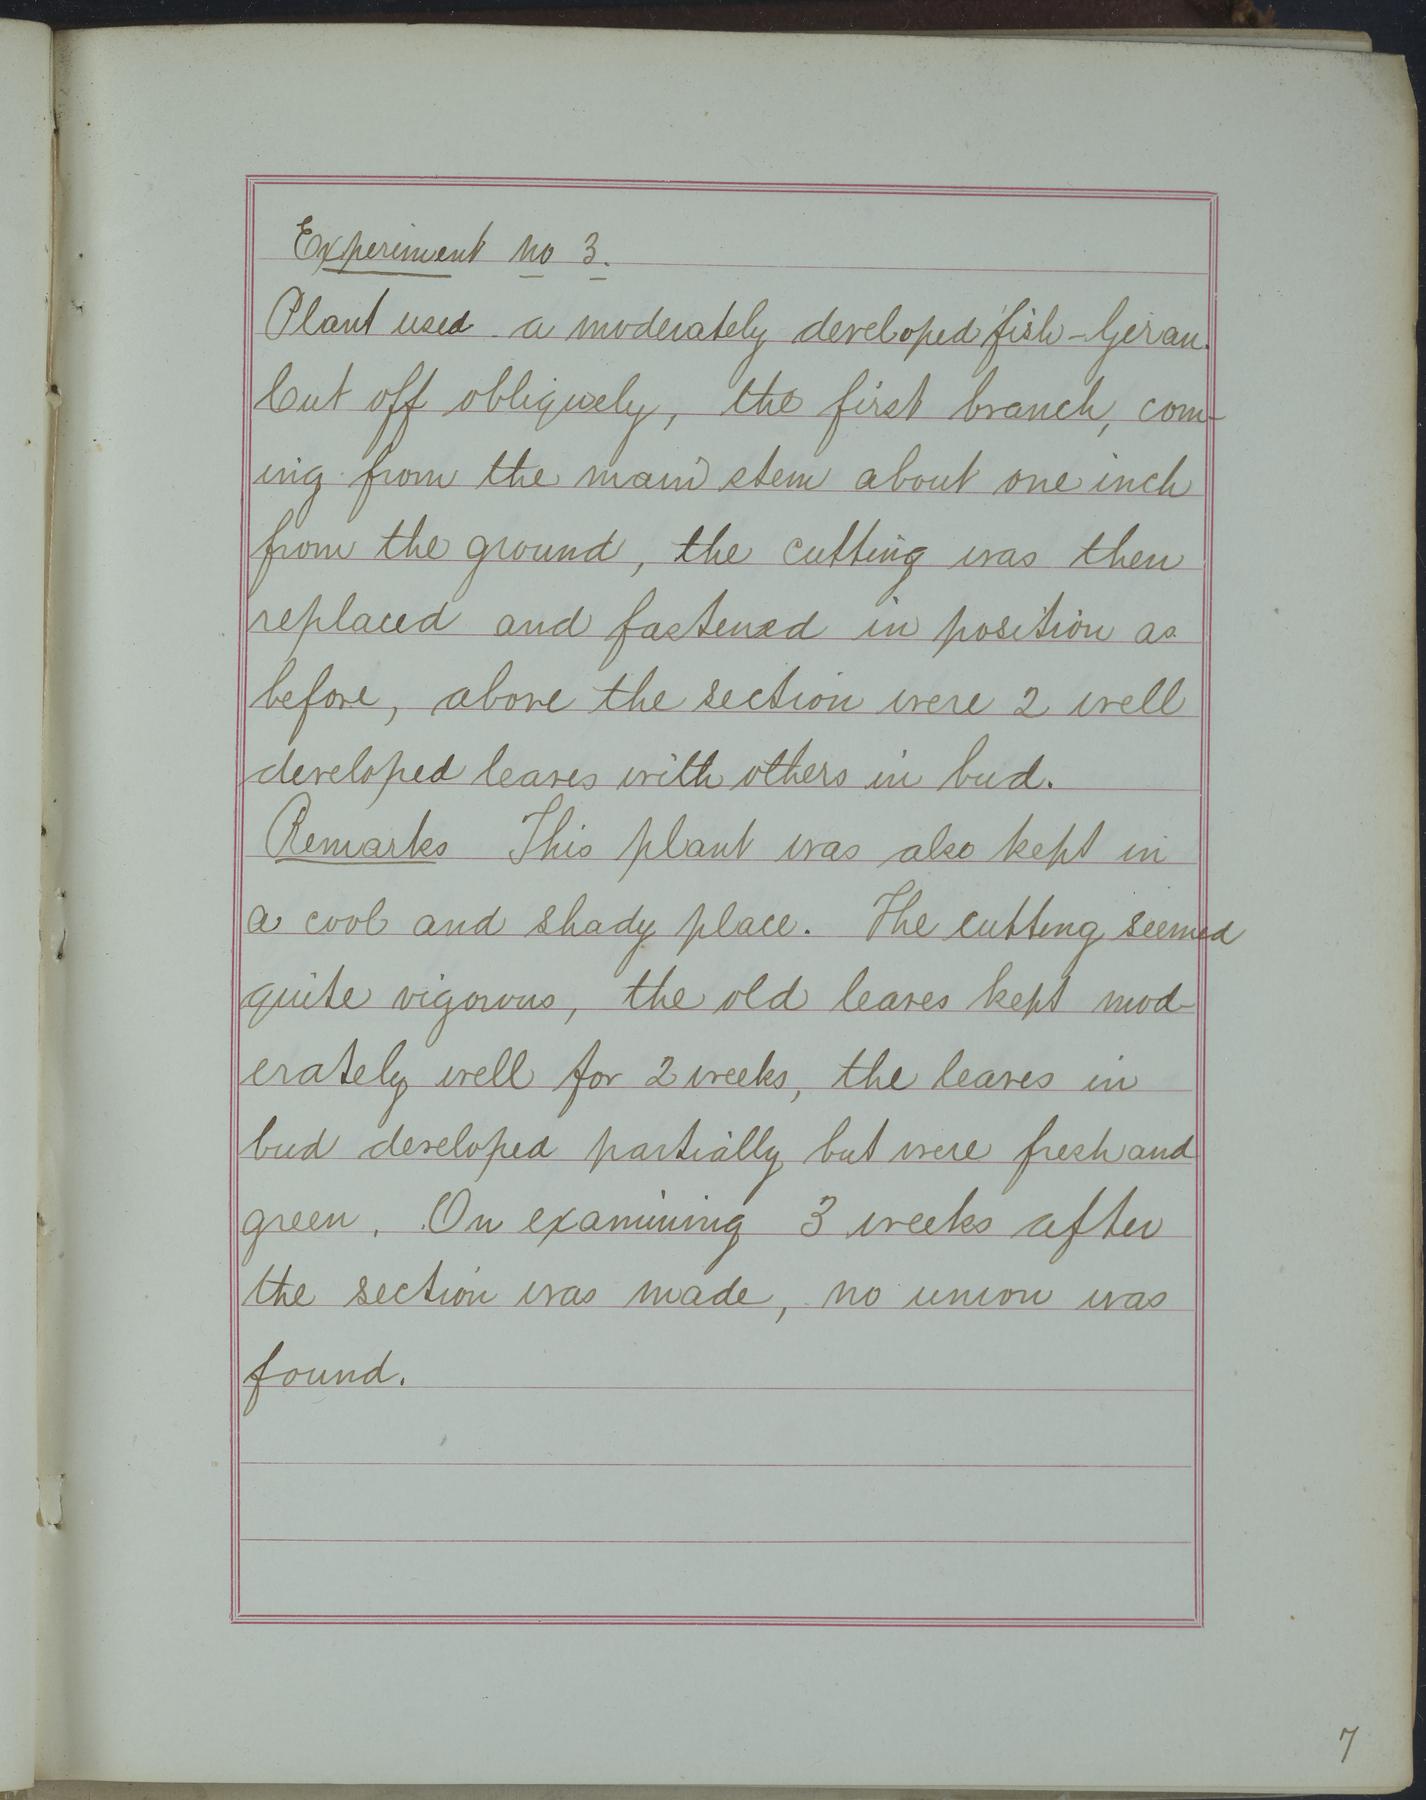 Experiment no 3.
Plant used a moderately developed fish-Geran.
Cut off obliquely, the first branch, com-
ing from the main stem about one inch
from the ground, the cutting was then
replaced and fastened in position as
before, above the section were 2 well
developed leaves with others in bud.
Remarks This plant was also kept in
a cool and shady place. The cutting seemed
quite vigorous, the old leaves kept mod-
erately well for 2 weeks, the leaves in
bud developed partially but were fresh and
green. On examining 3 weeks after
the section was made, no union was
found.
7